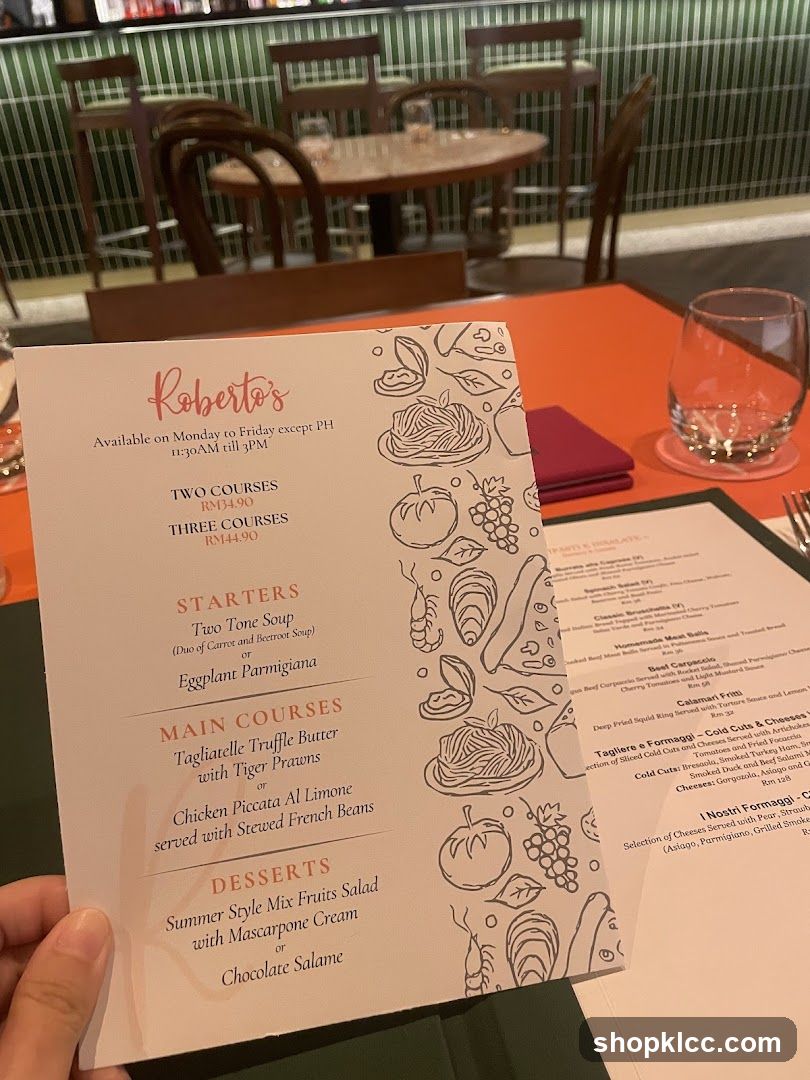 Roberto's
Available on Monday to Friday except PH
11:30AM till 3PM
TWO COURSES
RM34.90
THREE COURSES
RM44.90
STARTERS
Two Tone Soup
(Duo of Carrot and Beetroot Soup)
or
Eggplant Parmigiana
MAIN COURSES
Tagliatelle Truffle Butter
with Tiger Prawns
or
Chicken Piccata Al Limone
served with Stewed French Beans
DESSERTS
Summer Style Mix Fruits Salad
with Mascarpone Cream
or
Chocolate Salame
Burrata alla Caprese (V)
Spinach Salad (V)
Classic Bruschetta (V)
Homemade Meat Balls
Rm 36
Beef Carpaccio
Beef Carpaccio Served with Rocket Salad, Shaved Parmigiano
Cherry Tomatoes and Light Mustard Sauce
Rm 58
Calamari Fritti
Deep Fried Squid Ring Served with Tartare Sauce and Lemon
Rm 32
Tagliere e Formaggi – Cold Cuts & Cheeses
of Sliced Cold Cuts and Cheeses Served with Artichokes
Tomatoes and Fried Focaccia
Cold Cuts: Bresaola, Smoked Turkey Ham,
Smoked Duck and Beef Salami
Cheeses: Gorgozola, Asiago and
Rm 128
I Nostri Formaggi -
Selection of Cheeses Served with Pear,
(Asiago, Parmigiano, Grilled
shopklcc.com